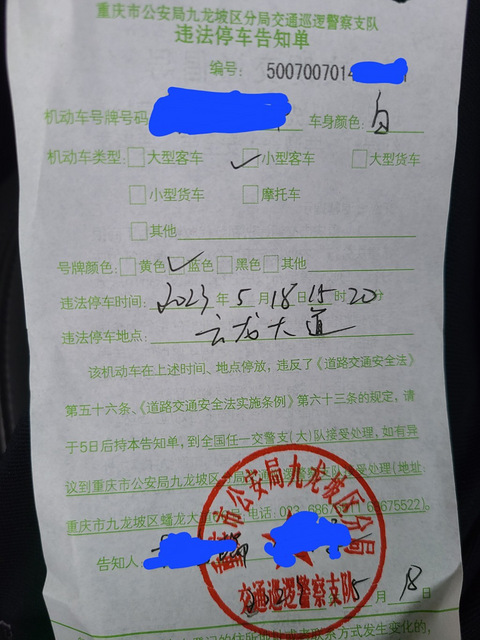 重庆市公安局九龙坡区分局交通巡逻警察支队
违法停车告知单
编号: 5007007014
机动车号牌号码 车身颜色: 白
机动车类型: 大型客车 小型客车 大型货车
小型货车 摩托车
其他
号牌颜色: 黄色 蓝色 黑色 其他
违法停车时间: 2023 年 5 月 18 日 15 时 20 分
违法停车地点: 云龙大道
该机动车在上述时间、地点停放，违反了《道路交通安全法》
第五十六条、《道路交通安全法实施条例》第六十三条的规定，请
于5日后持本告知单，到全国任一交警支(大)队接受处理，如有异
议到重庆市公安局九龙坡区分局交通巡逻警察支队接受处理(地址:
重庆市九龙坡区蟠龙大道 电话: 023 68675522)。
告知人:
重庆市公安局九龙坡区分局
交通巡逻警察支队
5 月 18 日